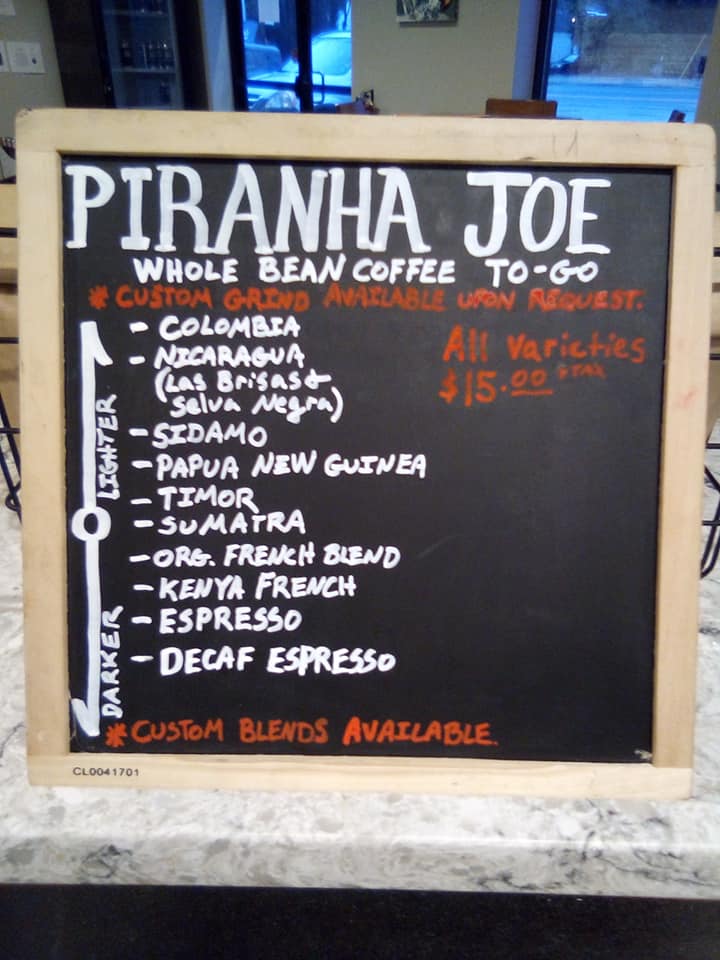 PIRANHA JOE
WHOLE BEAN COFFEE TO-GO
* CUSTOM GRIND AVAILABLE UPON REQUEST.
- COLOMBIA
- NICARAGUA
(Las Brisas &
Selva Negra)
- SIDAMO
- PAPUA NEW GUINEA
- TIMOR
- SUMATRA
- ORG. FRENCH BLEND
- KENYA FRENCH
- ESPRESSO
- DECAF ESPRESSO
LIGHTER
DARKER
All Varieties
$15.00 + TAX
* CUSTOM BLENDS AVAILABLE.
CL0041701